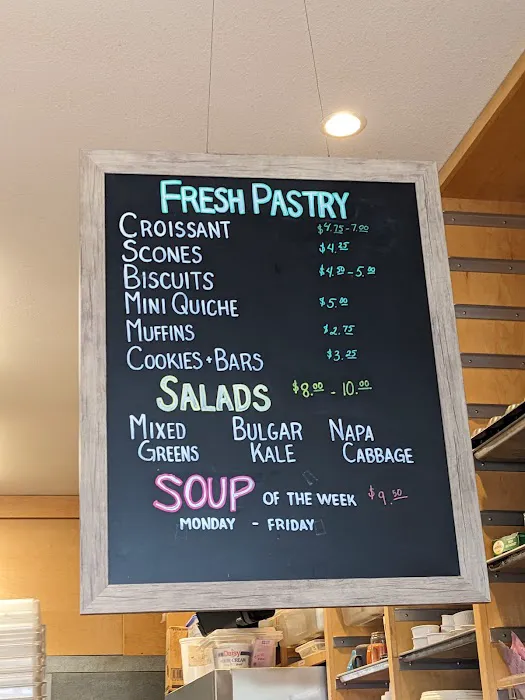 FRESH PASTRY
CROISSANT $4.75-7.00
SCONES $4.25
BISCUITS $4.50-5.00
MINI QUICHE $5.00
MUFFINS $2.75
COOKIES+BARS $3.25
SALADS $8.00 - 10.00
MIXED GREENS
BULGAR KALE
NAPA CABBAGE
SOUP OF THE WEEK $9.50
MONDAY - FRIDAY
Daisy